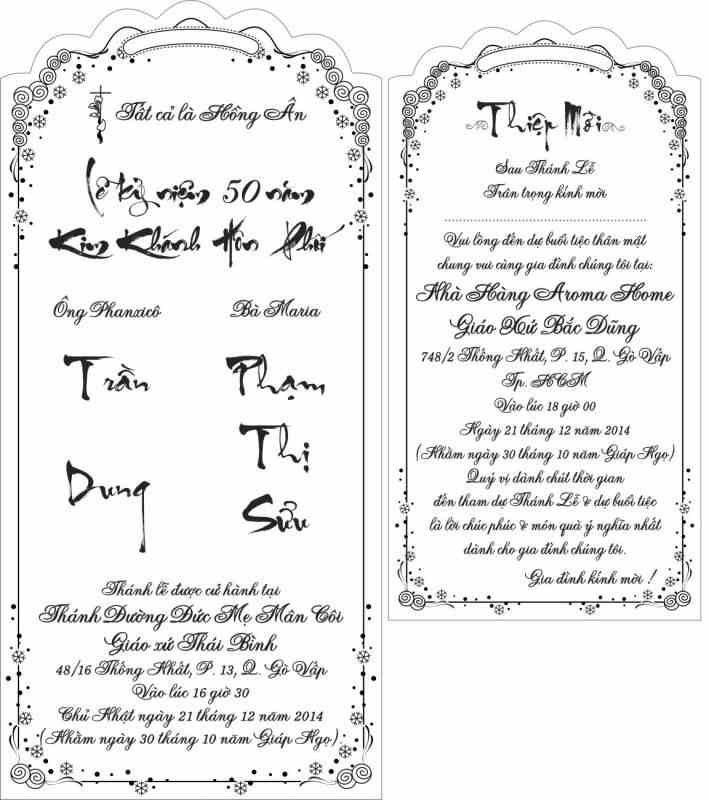 Tất cả là Hồng Ân
Lễ kỷ niệm 50 năm
Kim Khánh Hôn Phối
Ông Phanxicô
Bà Maria
Trần
Dung
Phạm
Thị
Sửu
Thánh lễ được cử hành tại
Thánh Đường Đức Mẹ Mân Côi
Giáo xứ Thái Bình
48/16 Thống Nhất, P. 13, Q. Gò Vấp
Vào lúc 16 giờ 30
Chủ Nhật ngày 21 tháng 12 năm 2014
(Nhằm ngày 30 tháng 10 năm Giáp Ngọ)
Thiệp Mời
Sau Thánh Lễ
Trân trọng kính mời
Vui lòng đến dự buổi tiệc thân mật
chung vui cùng gia đình chúng tôi tại:
Nhà Hàng Aroma Home
Giáo Xứ Bắc Dũng
748/2 Thống Nhất, P. 15, Q. Gò Vấp
Tp. HCM
Vào lúc 18 giờ 00
Ngày 21 tháng 12 năm 2014
(Nhằm ngày 30 tháng 10 năm Giáp Ngọ)
Quý vị dành chút thời gian
đến tham dự Thánh Lễ & dự buổi tiệc
là lời chúc phúc & món quà ý nghĩa nhất
dành cho gia đình chúng tôi.
Gia đình kính mời !